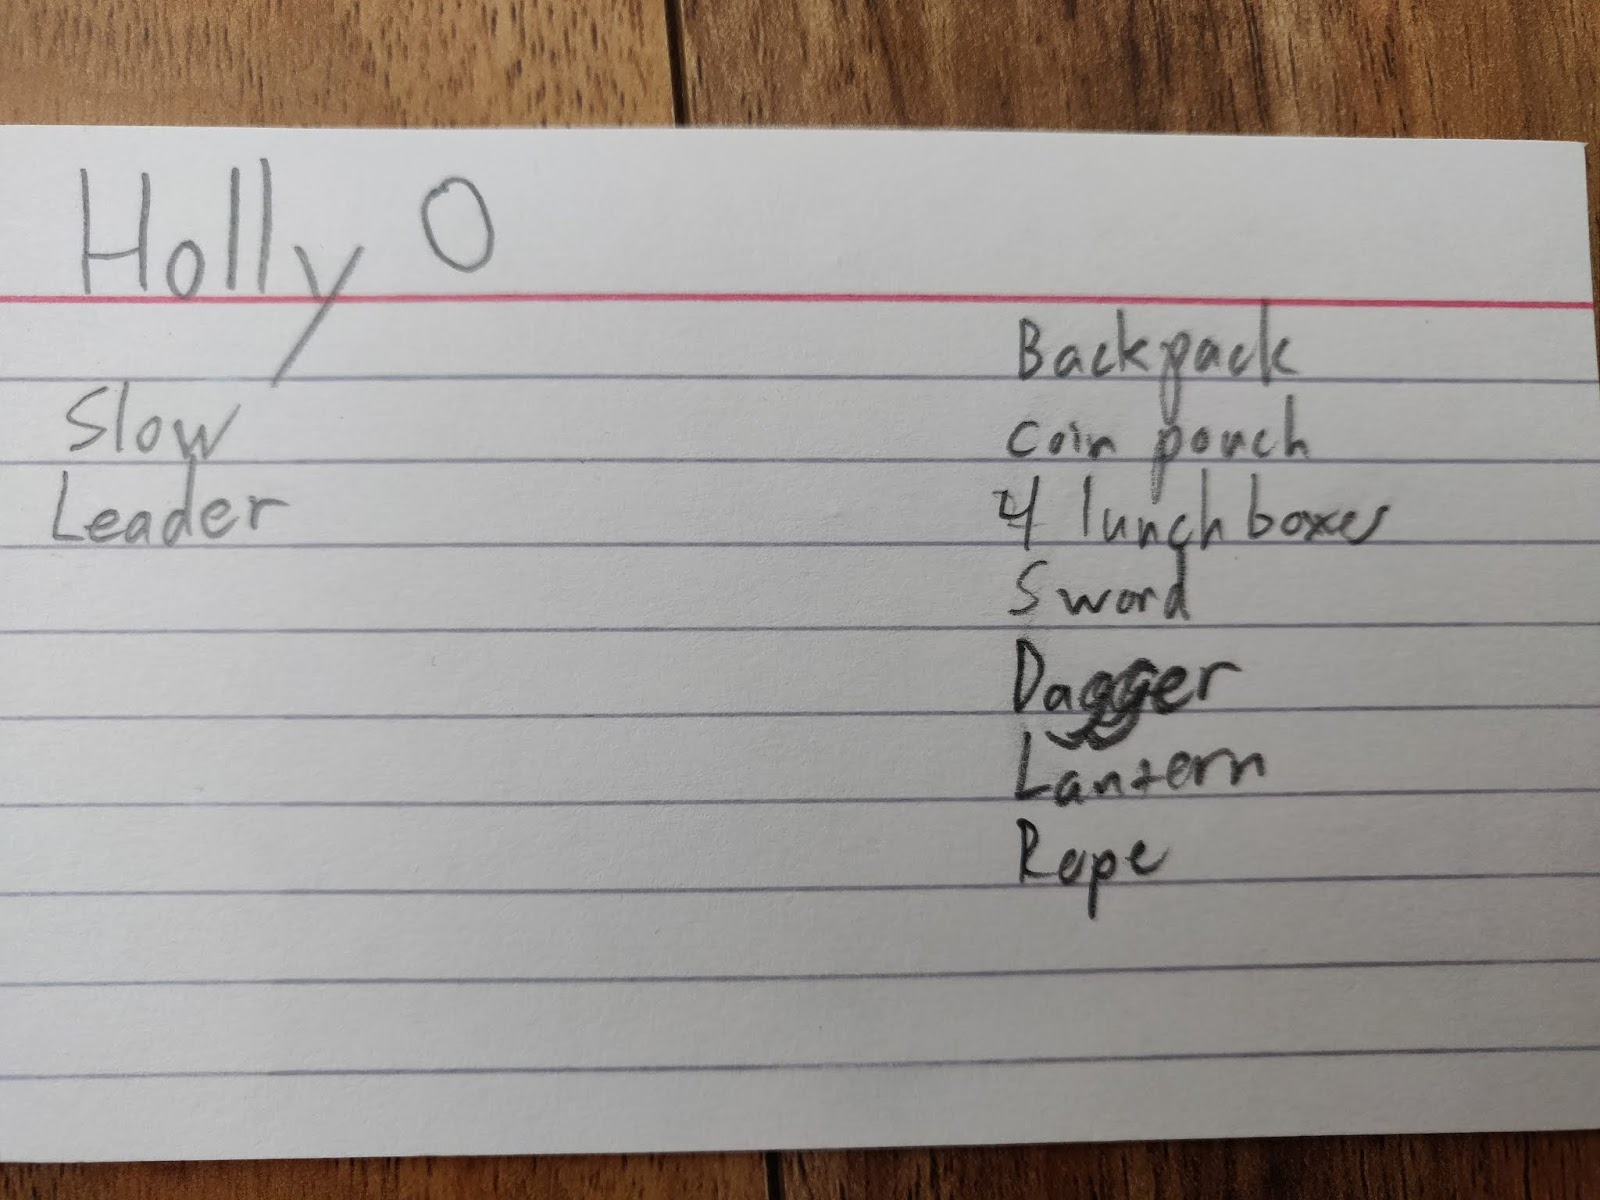 Holly O
Slow
Leader
Backpack
coin pouch
4 lunchboxes
Sword
Dagger
Lantern
Rope